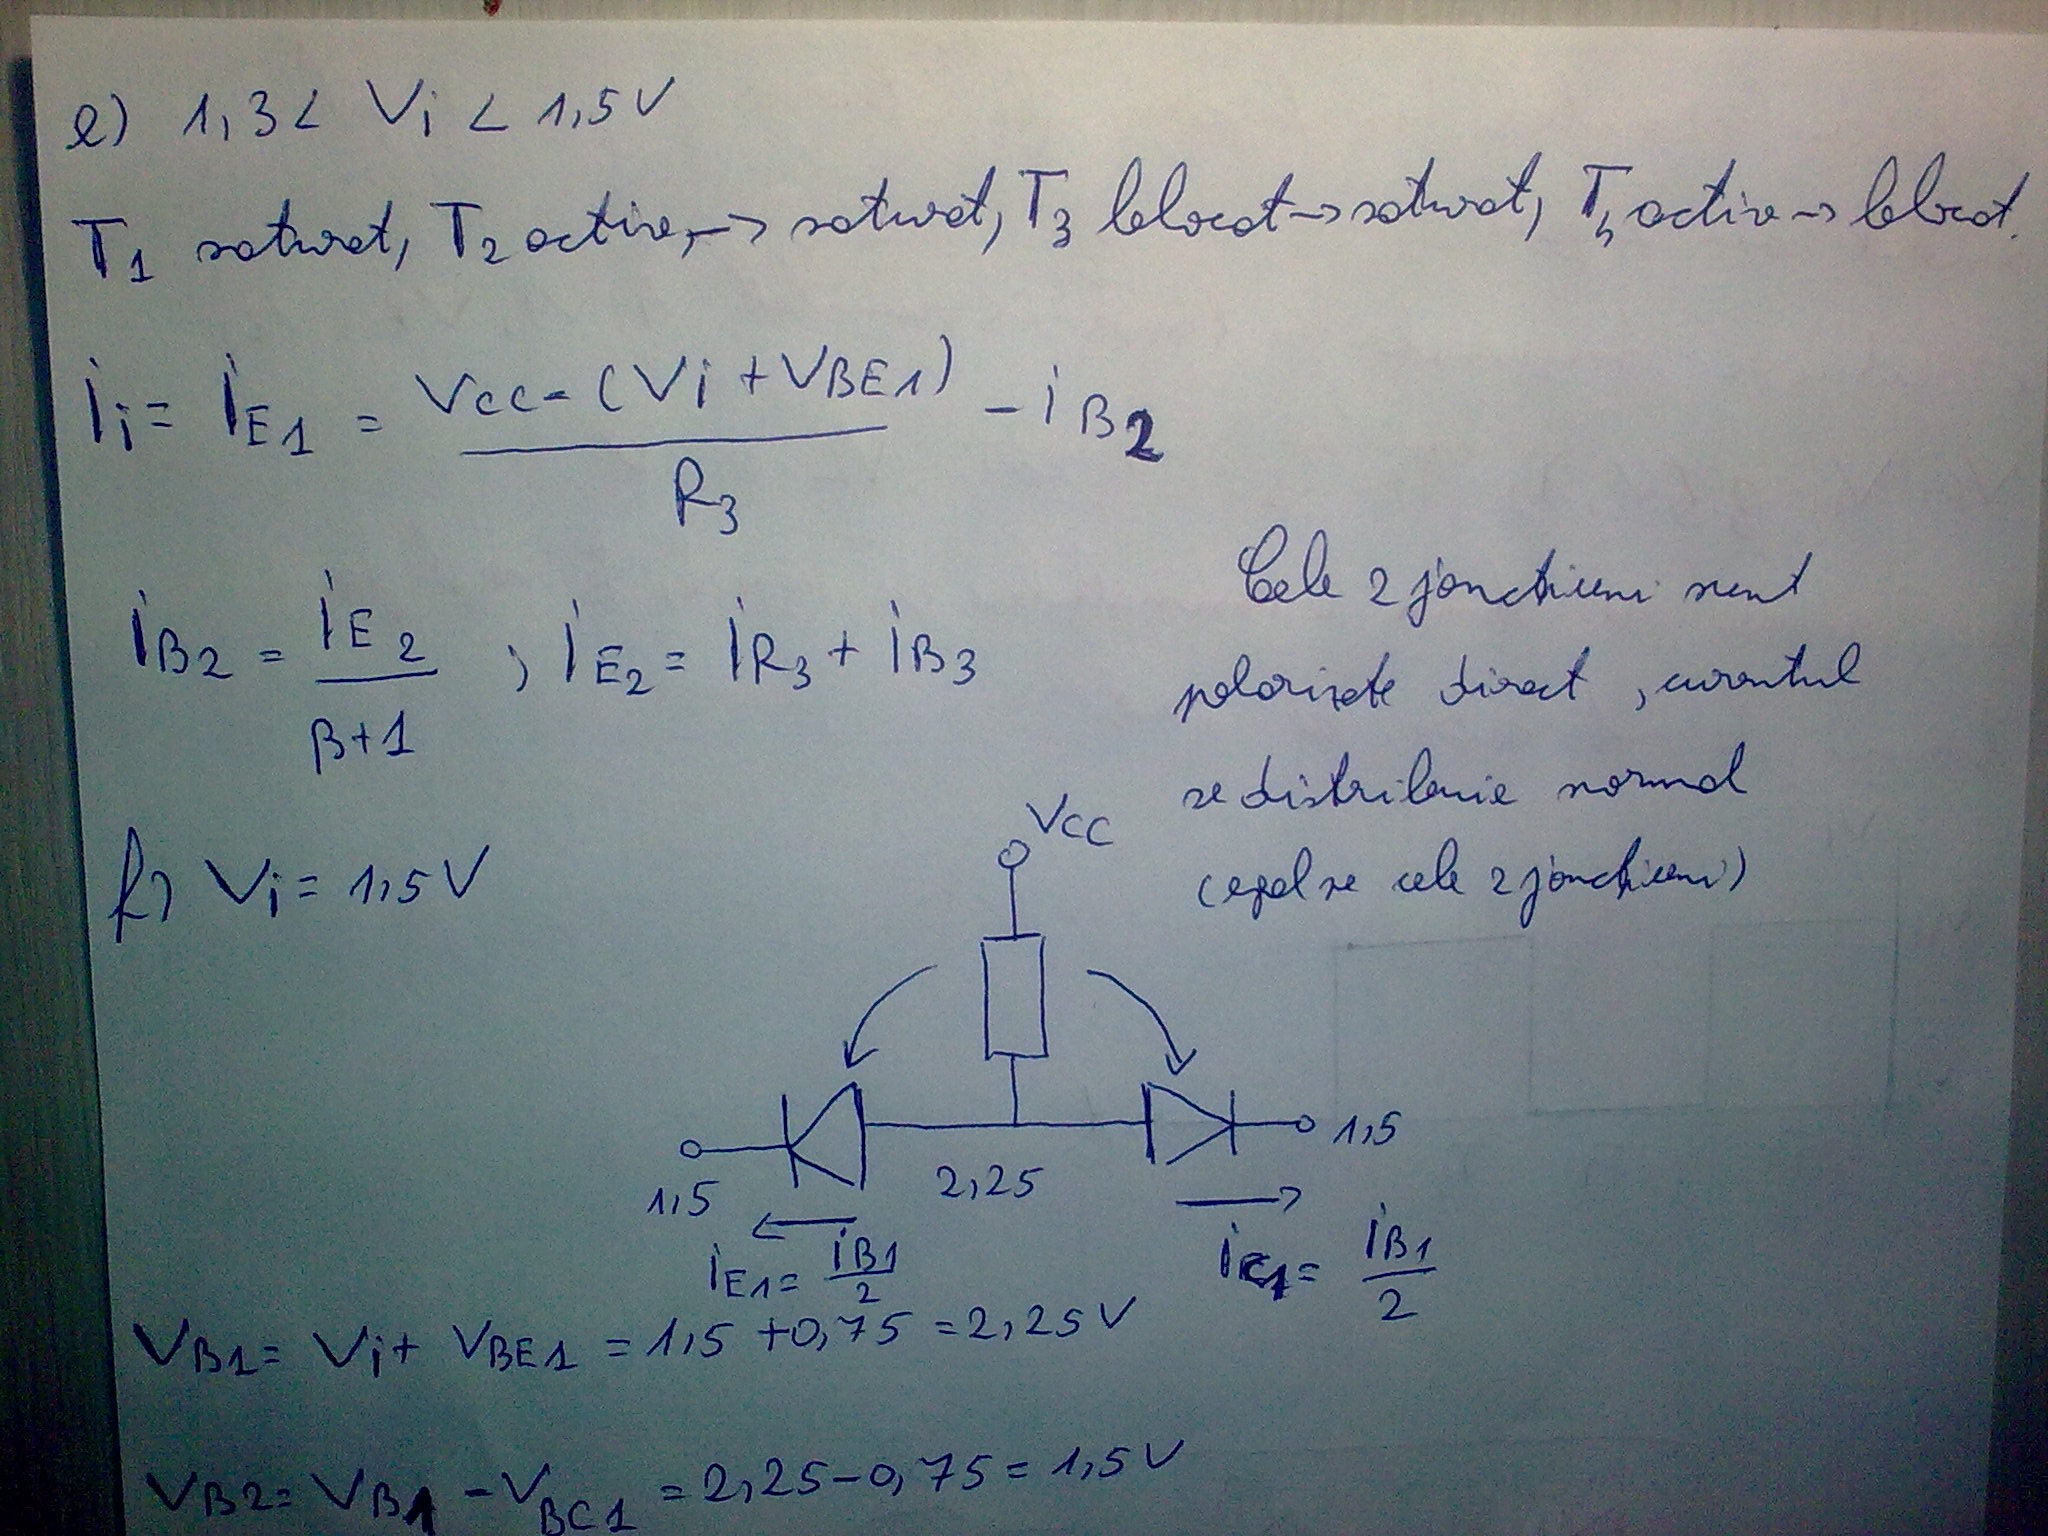 e) 1,3 < Vi < 1,5 V
T1 saturat, T2 activ, -> saturat, T3 blocat -> saturat, T4 activ -> blocat.
ii = iE1 = (VCC - (Vi + VBE1)) / R3 - iB2
iB2 = iE2 / (β+1) ; iE2 = iR3 + iB3
Cele 2 jonctiuni sunt
polarizate direct, curentul
se distribuie normal
(egal se cele 2 jonctiuni)
f) Vi = 1,5 V
VCC
1,5 2,25 1,5
iE1 = iB1 / 2 iC1 = iB1 / 2
VB1 = Vi + VBE1 = 1,5 + 0,75 = 2,25 V
VB2 = VB1 - VBC1 = 2,25 - 0,75 = 1,5 V